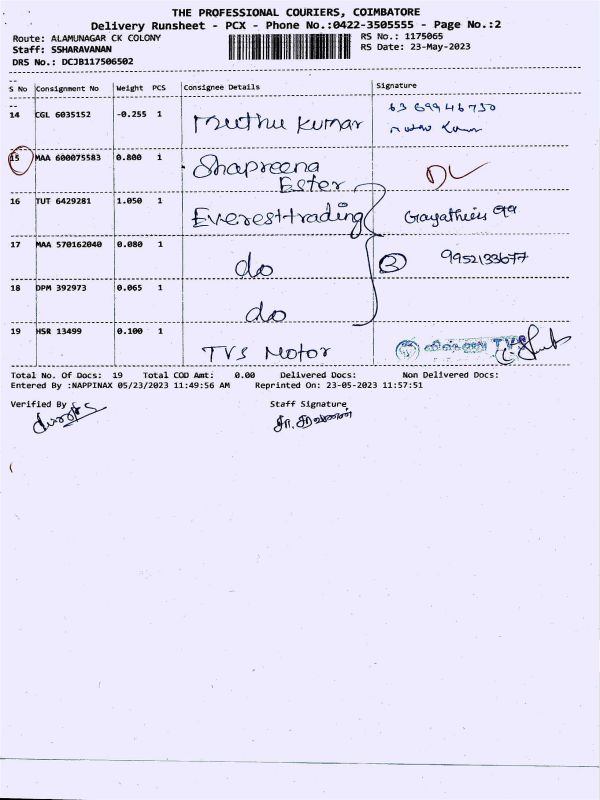 THE PROFESSIONAL COURIERS, COIMBATORE
Delivery Runsheet - PCX - Phone No.:0422-3505555 - Page No.:2
Route: ALAMUNAGAR CK COLONY
RS No.: 1175065
Staff: SSHARAVANAN
RS Date: 23-May-2023
DRS No.: DCJB117506502
S No Consignment No Weight PCS Consignee Details Signature
14 CGL 6035152 -0.255 1 Muthu Kumar 6369946730
Muthu Kumar
15 MAA 600075583 0.800 1 Shapreena
Ester DL
16 TUT 6429281 1.050 1 Everesttrading Gayathiris
17 MAA 570162040 0.080 1 do 3 9952133677
18 DPM 392973 0.065 1 do
19 HSR 13499 0.100 1 TVS Motor TVS
Total No. Of Docs: 19 Total COD Amt: 0.00 Delivered Docs: Non Delivered Docs:
Entered By :NAPPINAX 05/23/2023 11:49:56 AM Reprinted On: 23-05-2023 11:57:51
Verified By Staff Signature
சா. சரவணன்